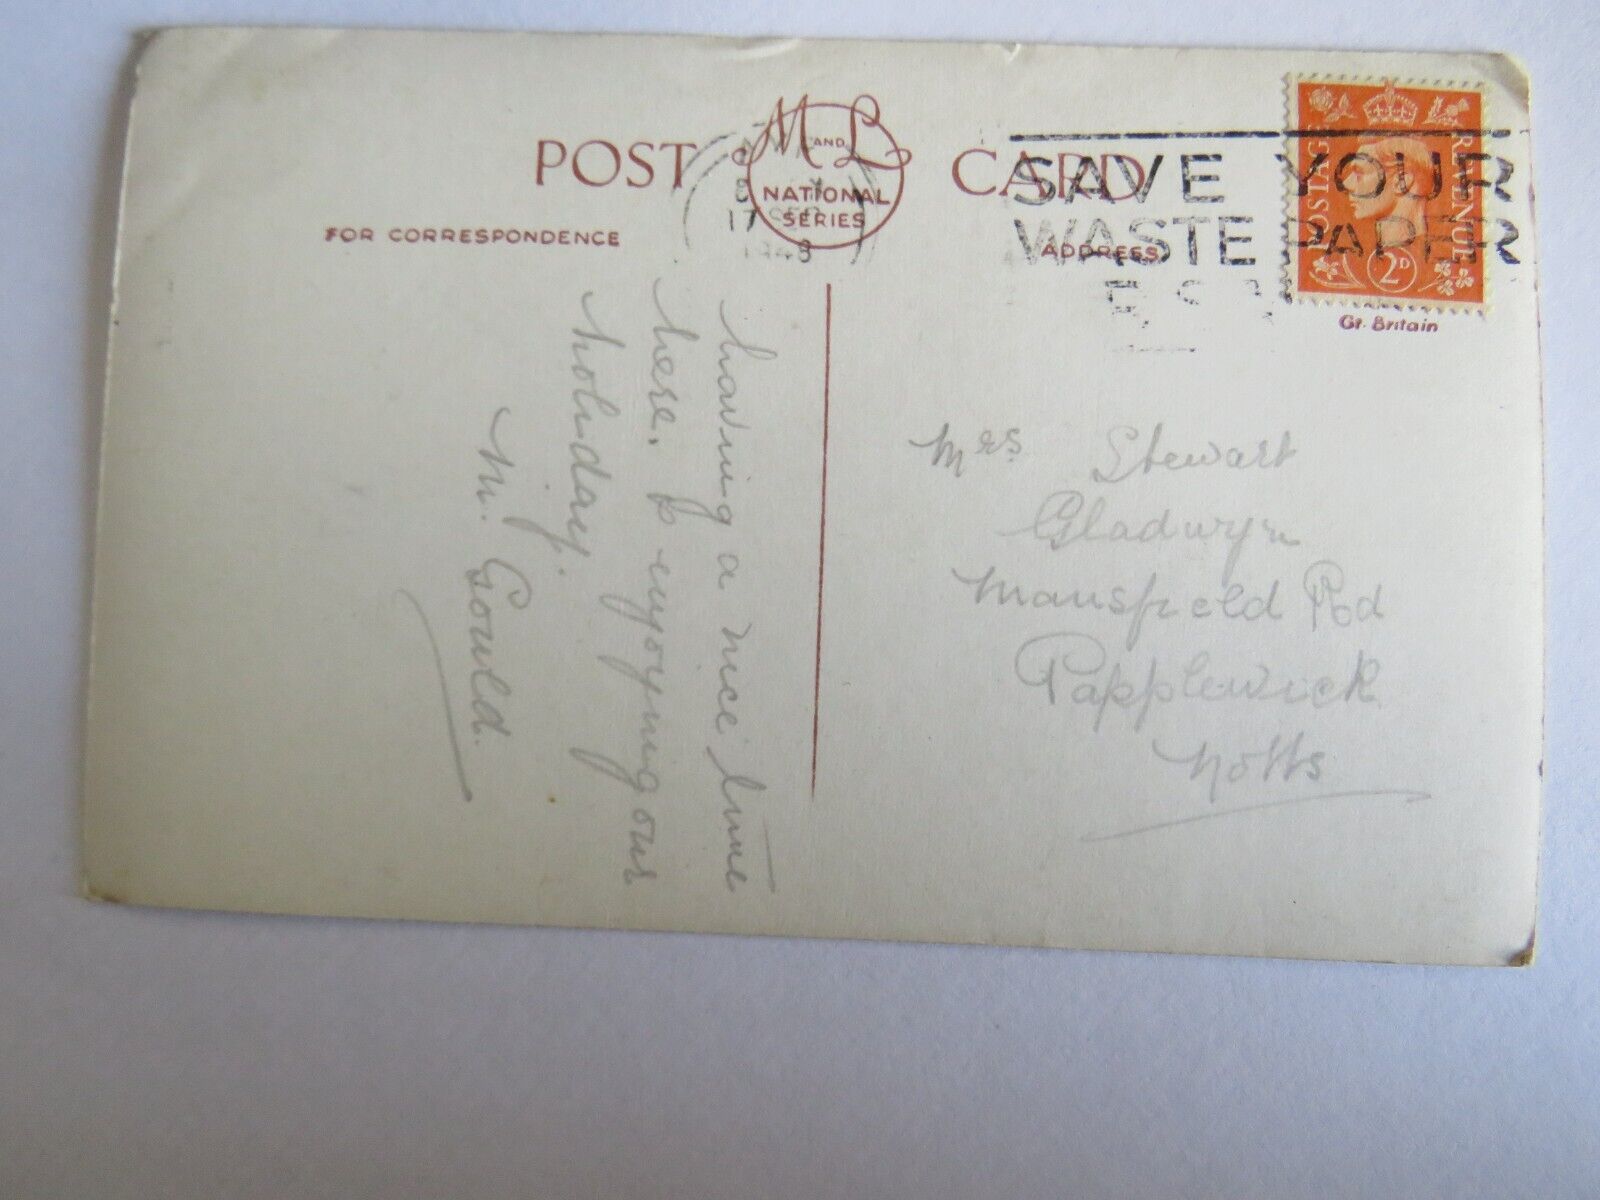 POST CARD
M AND L
NATIONAL
SERIES
FOR CORRESPONDENCE
ADDRESS
17 SEP
1948
SAVE YOUR
WASTE PAPER
POSTAGE REVENUE
2D
Gt. Britain
having a nice time
here. & enjoying our
holiday.
M. Gould.
Mrs. Stewart
Gladwyn
Mansfield Rod
Papplewick
Notts